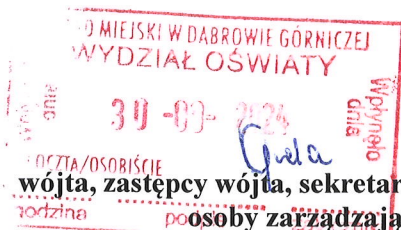 D MIEJSKI W DĄBROWIE GÓRNICZEJ
WYDZIAŁ OŚWIATY
Wpłynęło
dnia
30 -09- 2024
OCZTA/OSOBIŚCIE
wójta, zastępcy wójta, sekretar
godzina
osoby zarządzają